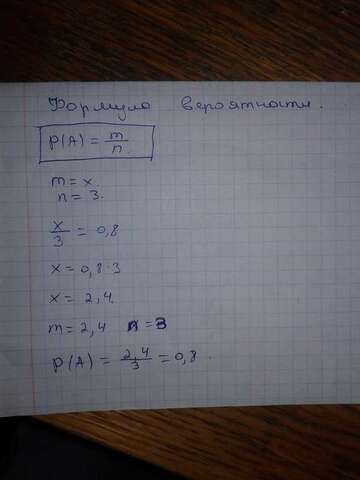 Формула вероятности.
P(A) = m/n.
m = x.
n = 3.
x/3 = 0,8
x = 0,8·3
x = 2,4.
m = 2,4 n = 3
P(A) = 2,4/3 = 0,8.